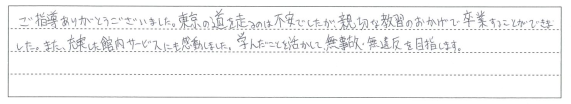 ご指導ありがとうございました。東京の道を走るのは不安でしたが、親切な教習のおかげで卒業することができま
した。また、充実した館内サービスにも感動しました。学んだことを活かして無事故・無違反を目指します。